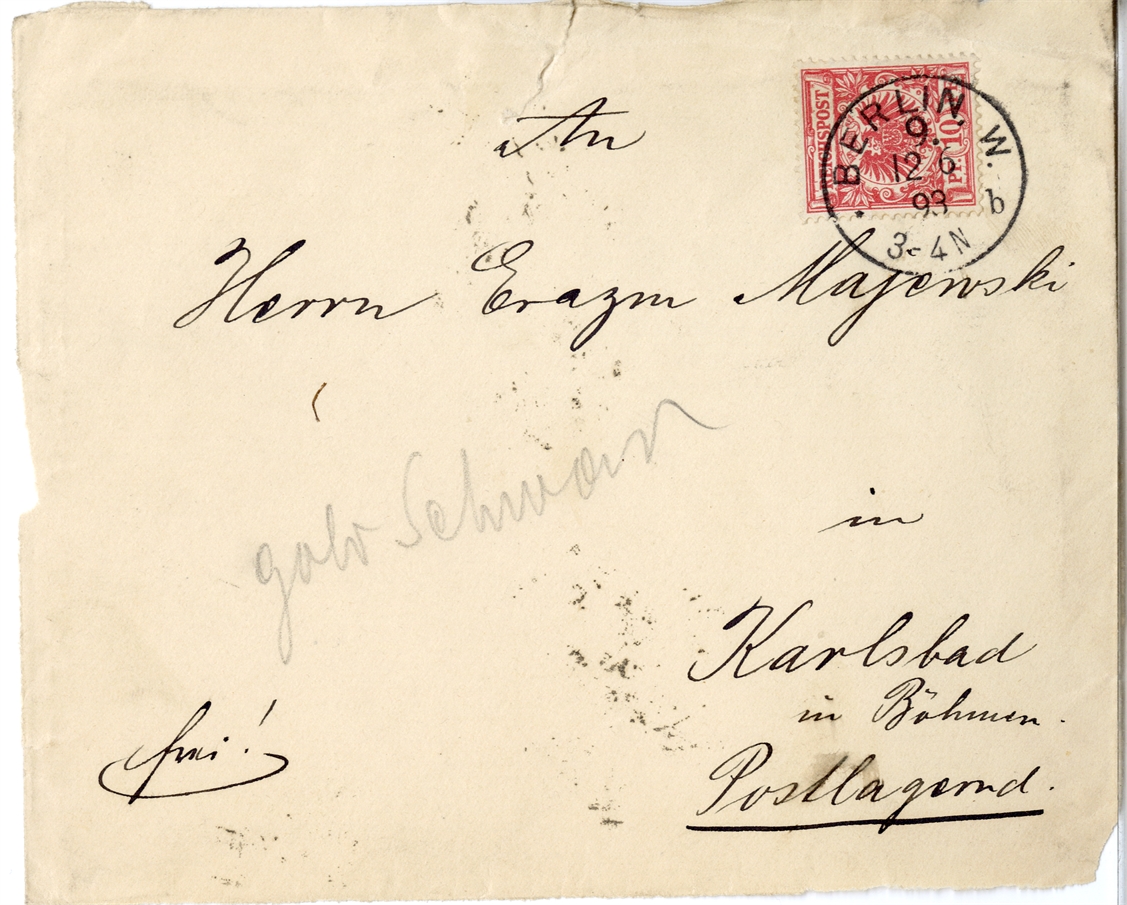 An
REICHSPOST
10
BERLIN, W.
9.
12 6
93 b
3-4N
Herrn Erazm Majewski
Schwan
in
Karlsbad
in Böhmen.
frei!
Postlagernd.